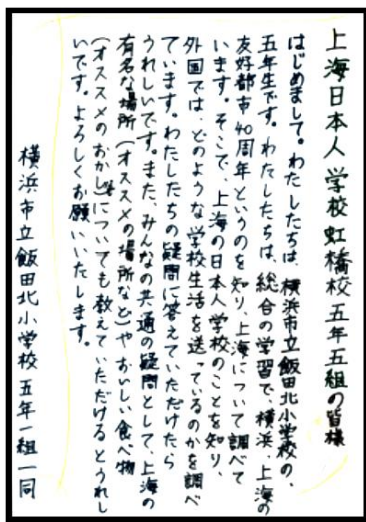 上海日本人学校虹橋校五年五組の皆様
はじめまして。わたしたちは、横浜市立飯田北小学校の、
五年生です。わたしたちは、総合の学習で、横浜、上海の
友好都市40周年というのを知り、上海について調べて
います。そこで、上海の日本人学校のことを知り、
外国では、どのような学校生活を送っているのかを調べ
ています。わたしたちの疑問に答えていただけたら
うれしいです。また、みんなの共通の疑問として、上海の
有名な場所(オススメの場所など)やおいしい食べ物
(オススメのおかし等)についても教えていただけるとうれし
いです。よろしくお願いいたします。
横浜市立飯田北小学校 五年一組一同